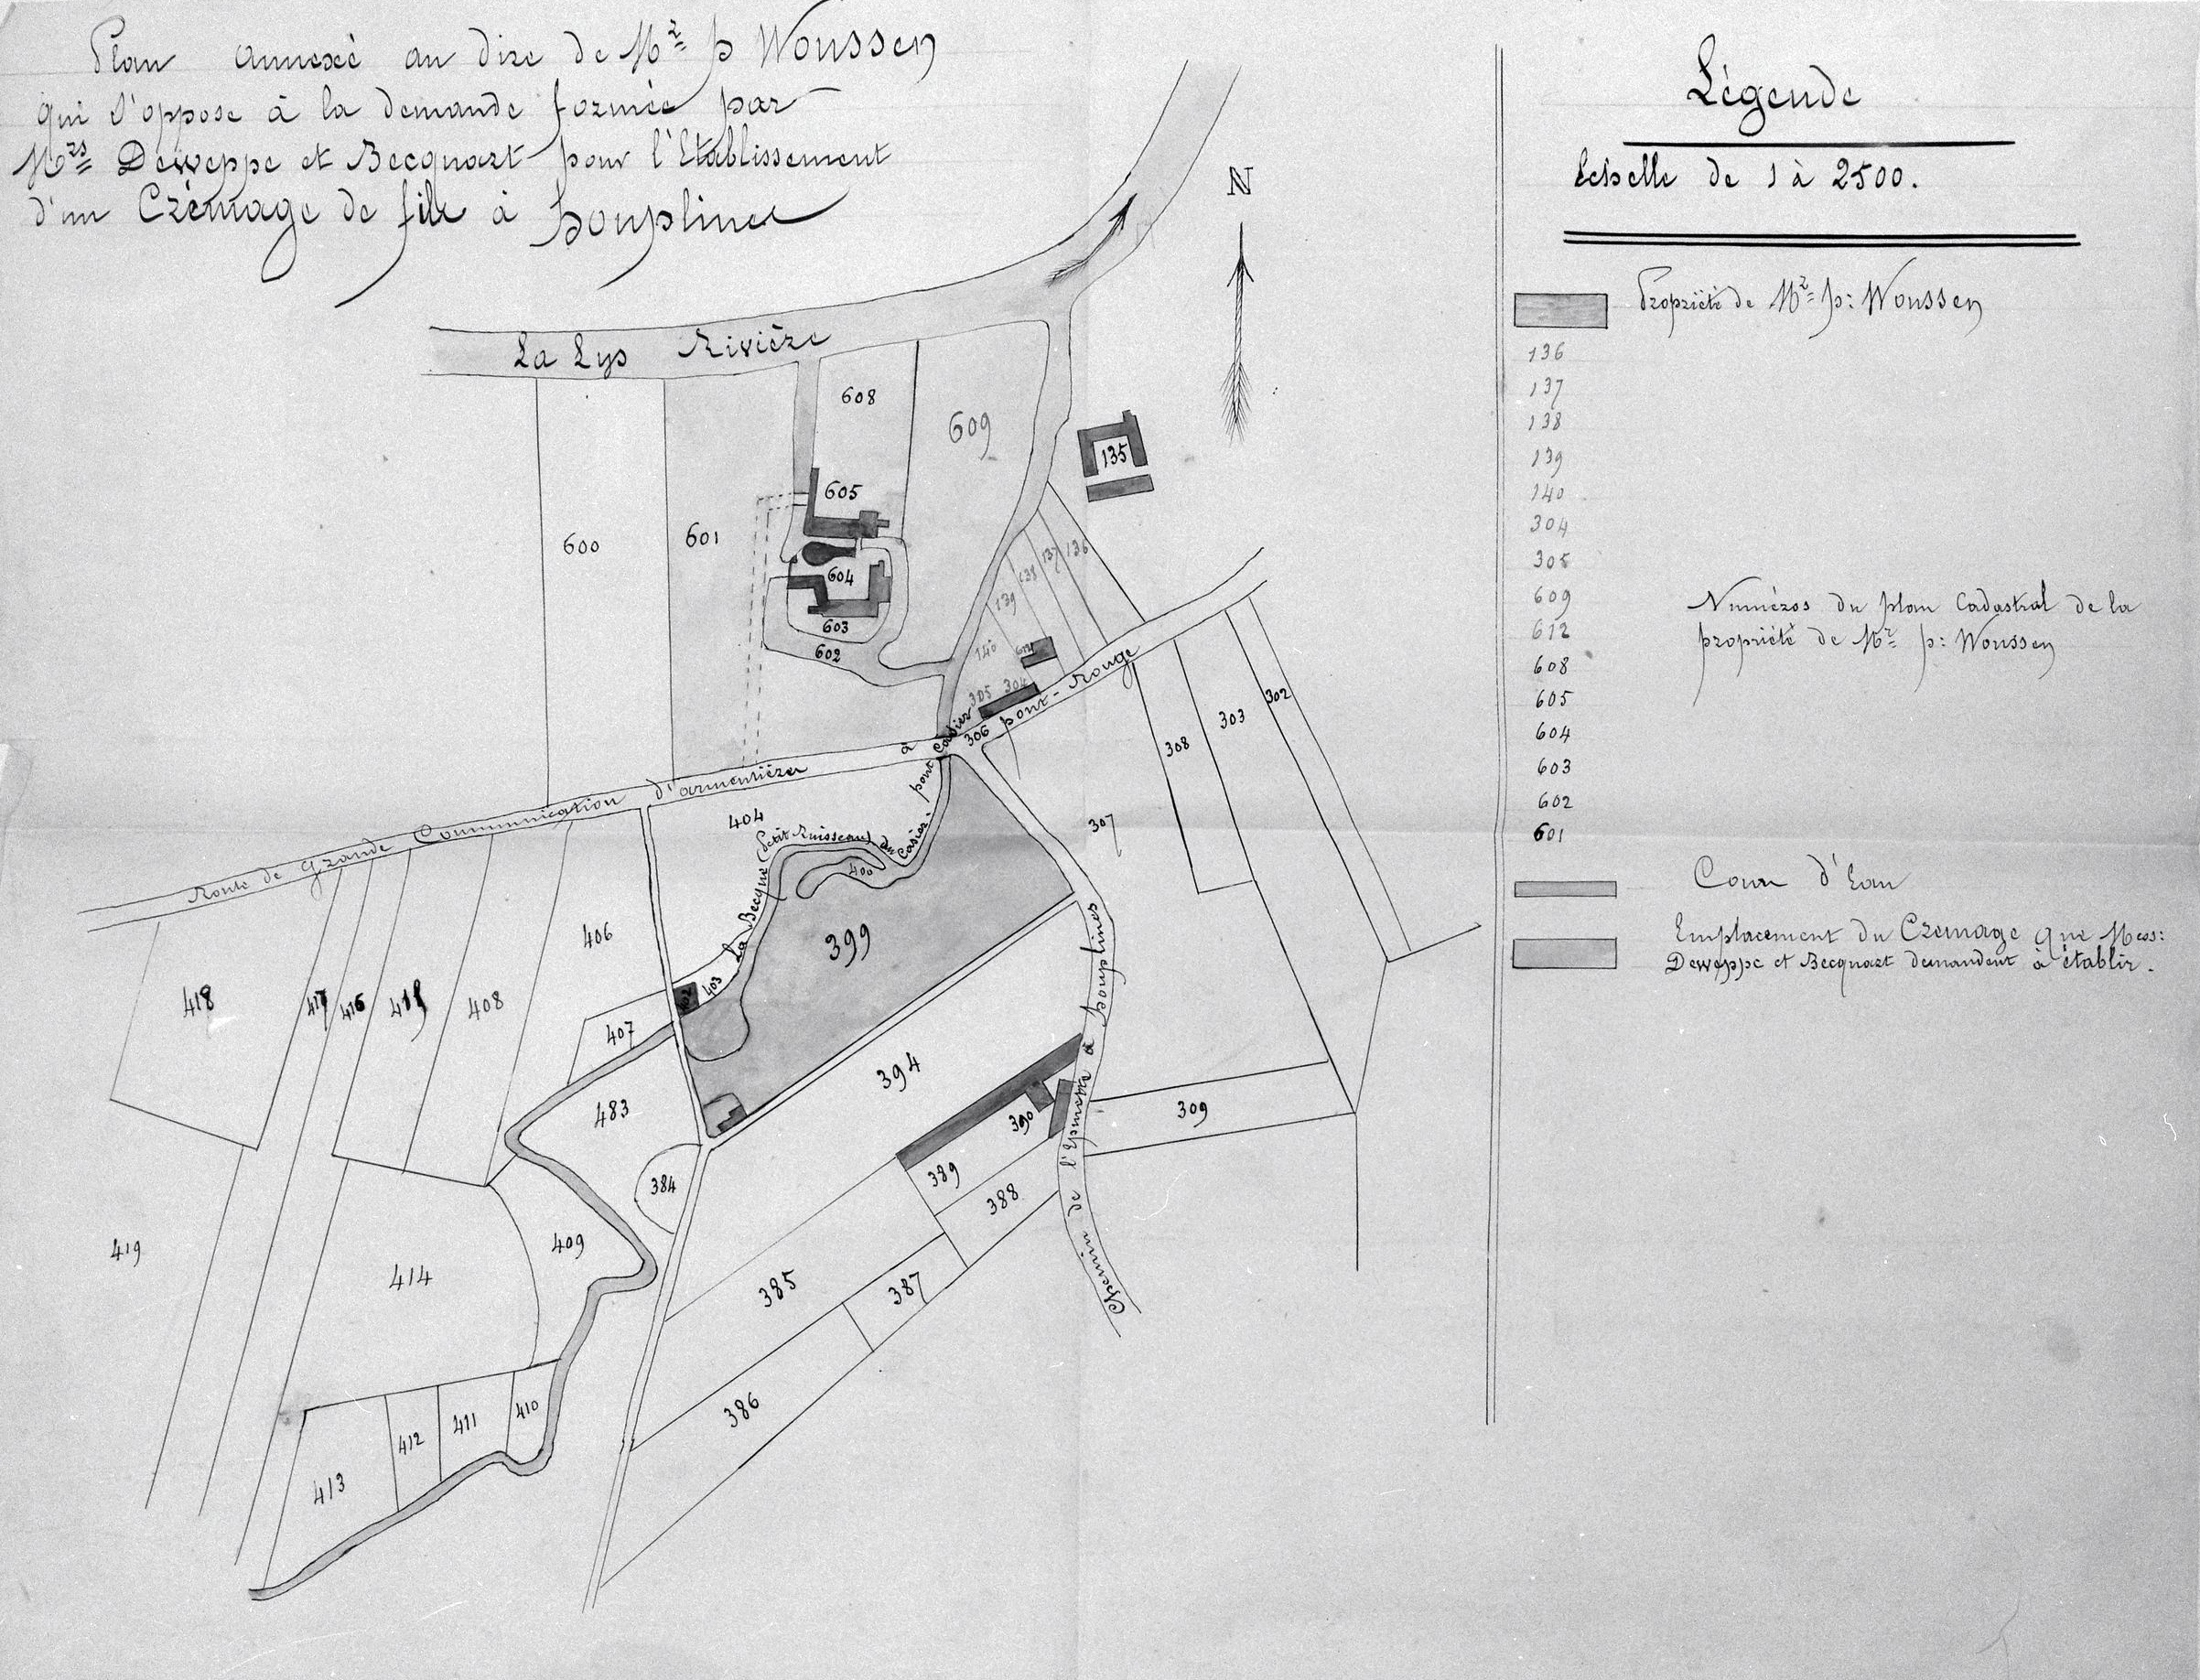 Plan annexé au dire de Mr p Woussen
qui s'oppose à la demande formée par
Mrs Deweppe et Becquart pour l'Etablissement
d'un Crèmage de fils à houplines
N
La Lys Rivière
608
609
135
605
600
601
604
603
602
137
136
138
139
140
612
305
304
306
à pont-Rouge
Route de Grande Communication d'armentières
pont Casier
302
303
308
307
404
La Becque (Petit Ruisseau) du Casier
400
399
406
403
402
407
418
417
416
415
408
394
483
390
309
389
384
388
409
419
414
385
387
386
410
411
412
413
Chemin de l'Epinette à houplines
Légende
Echelle de 1 à 2500.
Propriété de Mr p: Woussen
136
137
138
139
140
304
305
609
612
608
605
604
603
602
601
Numéros du plan Cadastral de la
propriété de Mr p: Woussen
Cour d'Eau
Emplacement du Crèmage que Mess:
Deweppe et Becquart demandent à établir.